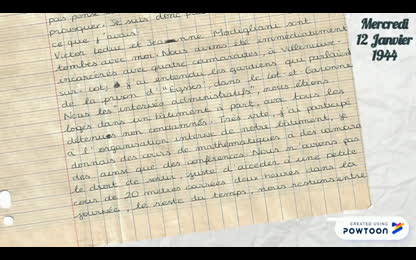 pas pensé
provoquer. Je suis donc
ce que j'avais
Victor Leduc et Jeanne Modigliani sont
tombés avec moi. Nous avons été immédiatement
incarcérés avec quatre camarades, à Villeneuve-
sur-Lot, j'ai entendu les gardiens qui parlaient
de la prison d'"Eysses", dans le Lot et Garonne
Nous les "internés administratifs", nous étions
logés dans un bâtiment à part, avec tous les
détenus non condamnés. Très vite, j'ai participé
à l'organisation interne de notre bâtiment, je
donnais des cours de mathématiques à des camara
des ainsi que des conférences. Nous n'avions pas
le droit de sortir, juste d'accéder à une petite
cour de 20 mètres carrées deux heures dans la
journée, le reste du temps, nous restions entre
Mercredi
12 Janvier
1944
CREATED USING
POWTOON